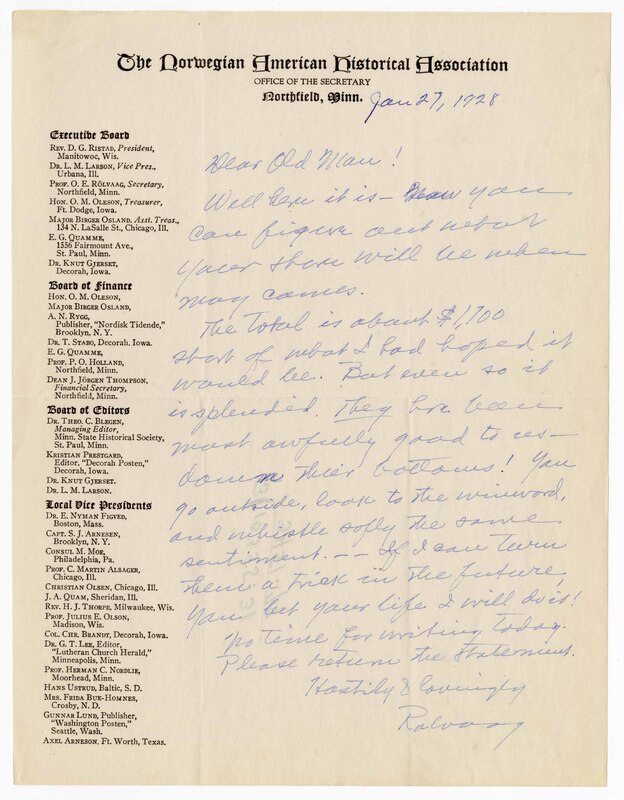 The Norwegian American Historical Association
OFFICE OF THE SECRETARY
Northfield, Minn.
Jan 27, 1928
Executive Board
REV. D. G. RISTAD, President,
Manitowoc, Wis.
DR. L. M. LARSON, Vice Pres.,
Urbana, Ill.
PROF. O. E. RÖLVAAG, Secretary,
Northfield, Minn.
HON. O. M. OLESON, Treasurer,
Ft. Dodge, Iowa.
MAJOR BIRGER OSLAND, Asst. Treas.,
134 N. LaSalle St., Chicago, Ill.
E. G. QUAMME,
1556 Fairmount Ave.,
St. Paul, Minn.
DR. KNUT GJERSET,
Decorah, Iowa.
Board of Finance
HON. O. M. OLESON,
MAJOR BIRGER OSLAND,
A. N. RYGG,
Publisher, "Nordisk Tidende,"
Brooklyn, N. Y.
DR. T. STABO, Decorah, Iowa.
E. G. QUAMME,
PROF. P. O. HOLLAND,
Northfield, Minn.
DEAN J. JÖRGEN THOMPSON,
Financial Secretary,
Northfield, Minn.
Board of Editors
DR. THEO. C. BLEGEN,
Managing Editor,
Minn. State Historical Society,
St. Paul, Minn.
KRISTIAN PRESTGARD,
Editor, "Decorah Posten,"
Decorah, Iowa.
DR. KNUT GJERSET.
DR. L. M. LARSON.
Local Vice Presidents
DR. E. NYMAN FIGVED,
Boston, Mass.
CAPT. S. J. ARNESEN,
Brooklyn, N. Y.
CONSUL M. MOE,
Philadelphia, Pa.
PROF. C. MARTIN ALSAGER,
Chicago, Ill.
CHRISTIAN OLSEN, Chicago, Ill.
J. A. QUAM, Sheridan, Ill.
REV. H. J. THORPE, Milwaukee, Wis.
PROF. JULIUS E. OLSON,
Madison, Wis.
COL. CHR. BRANDT, Decorah, Iowa.
DR. G. T. LEE, Editor,
"Lutheran Church Herald,"
Minneapolis, Minn.
PROF. HERMAN C. NORDLIE,
Moorhead, Minn.
HANS USTRUD, Baltic, S. D.
MRS. FRIDA BUE-HOMNES,
Crosby, N. D.
GUNNAR LUND, Publisher,
"Washington Posten,"
Seattle, Wash.
AXEL ARNESON, Ft. Worth, Texas.
Dear Old Man!
Well here it is – Now you
can figure out what
your share will be when
may comes.
The total is about $1,700
short of what I had hoped it
would be. But even so it
is splendid. They have been
most awfully good to us –
damn their bottoms! You
go outside, look to the winword,
and whistle softly the same
sentiment. – – If I can turn
them a trick in the future,
you bet your life I will do it!
No time for writing today.
Please return the Statement.
Hastily & lovingly
Rolvaag